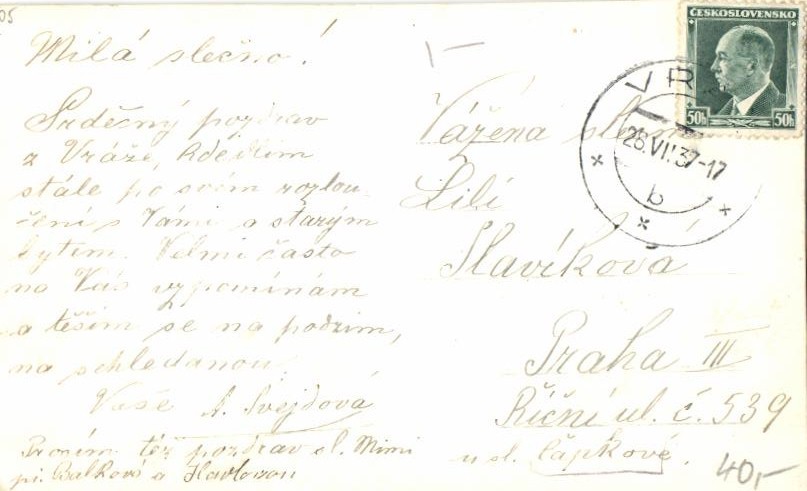 05
Milá slečno!
Srdečný pozdrav
z Vráže, kde dlím
stále po svém rozlou-
čení s Vámi a starým
bytem. Velmi často
na Vás vzpomínám
a těším se na podzim,
na shledanou
Vaše A. Švejdová
Prosím též pozdrav sl. Mimi
pí. Balkové a
ČESKOSLOVENSKO
50h 50h
VR
28.VII.37-17
b
Vážená
Lilí
Slavíková
Praha III
Říční ul. č. 539
u sl. Čápkové.
40,-